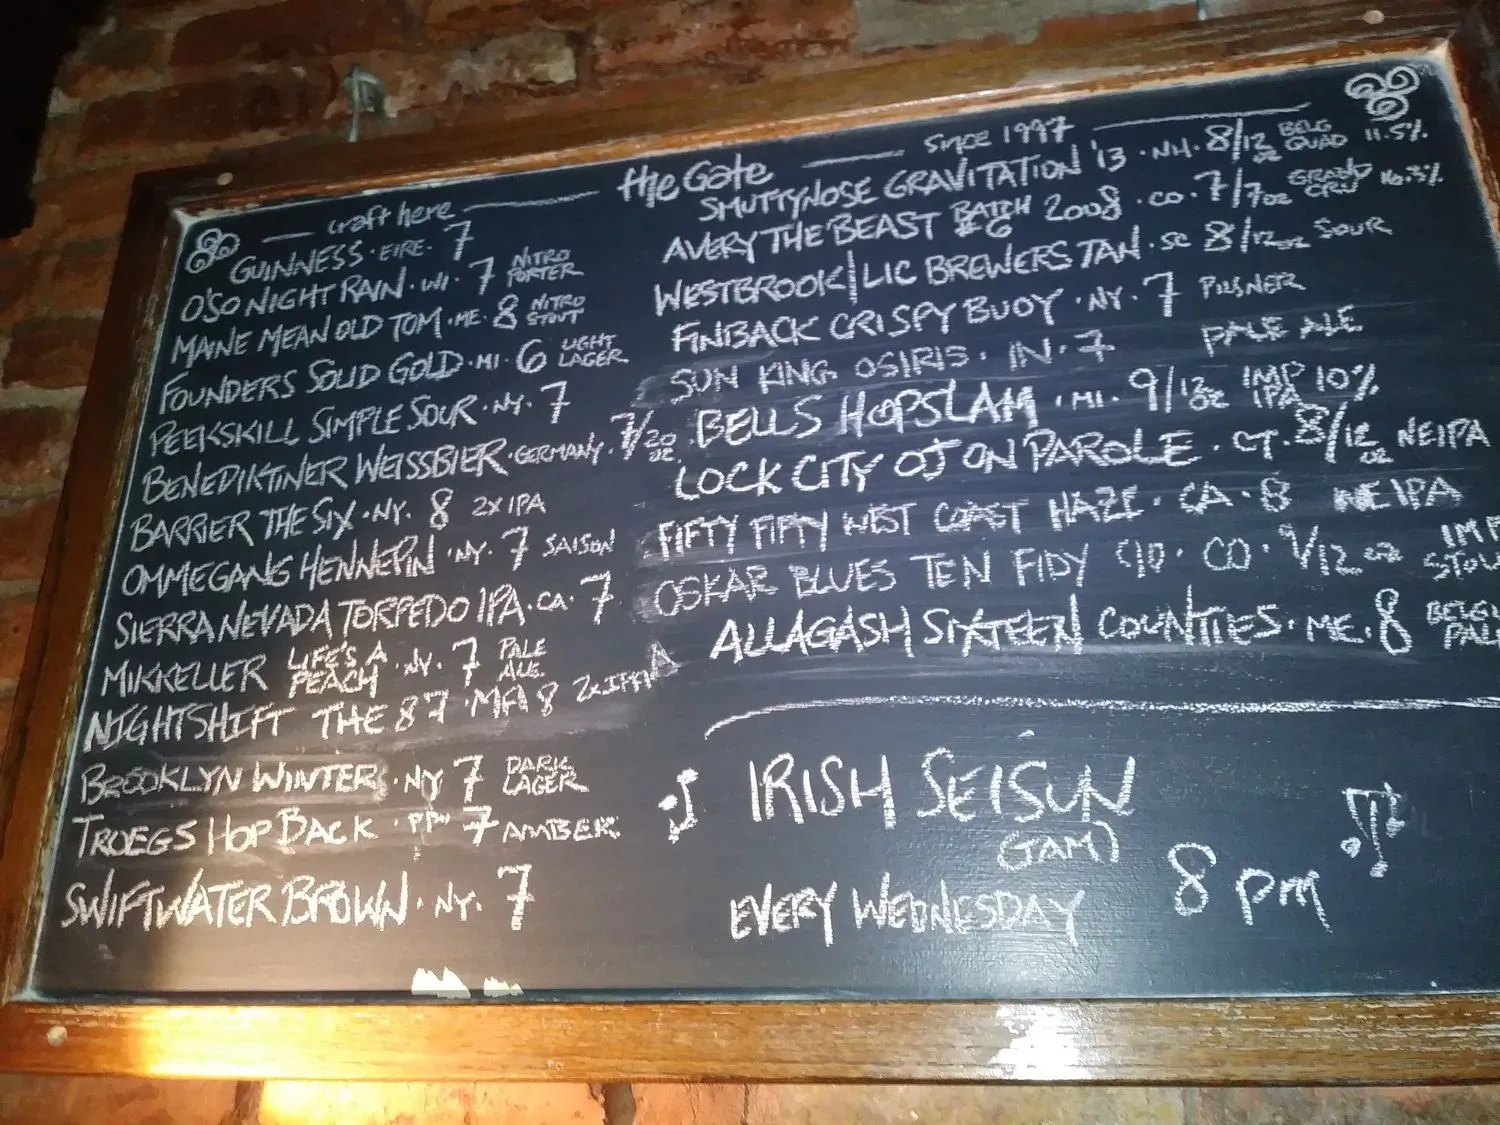 craft here
the Gate
since 1997
GUINNESS · EIRE · 7
O'SO NIGHT RAIN · WI · 7 NITRO PORTER
MAINE MEAN OLD TOM · ME · 8 NITRO STOUT
FOUNDERS SOLID GOLD · MI · 6 LIGHT LAGER
PEEKSKILL SIMPLE SOUR · NY · 7
BENEDIKTINER WEISSBIER · GERMANY · 7/20 oz
BARRIER THE SIX · NY · 8 2X IPA
OMMEGANG HENNEPIN · NY · 7 SAISON
SIERRA NEVADA TORPEDO IPA · CA · 7
MIKKELLER LIFE'S A PEACH · NY · 7 PALE ALE
NIGHTSHIFT THE 87 · MA 8
BROOKLYN WINTER · NY 7 DARK LAGER
TROEGS HOP BACK · 7 AMBER
SWIFTWATER BROWN · NY · 7
SMUTTYNOSE GRAVITATION '13 · NH · 8/12 oz BELG QUAD 11.5%
AVERY THE BEAST BATCH #6 2008 · CO · 7/7oz GRAND CRU 16.3%
WESTBROOK | LIC BREWERS TAN · SC 8/12 oz SOUR
FINBACK CRISPY BUOY · NY · 7 PILSNER
SUN KING OSIRIS · IN · 7 PALE ALE
BELLS HOPSLAM · MI · 9/12 oz IMP IPA 10%
LOCK CITY OJ ON PAROLE · CT · 8/12 oz NEIPA
FIFTY FIFTY WEST COAST HAZE · CA · 8 NEIPA
OSKAR BLUES TEN FIDY · CO · 9/12 oz IMP STOU
ALLAGASH SIXTEEN COUNTIES · ME · 8 BELG PALE
IRISH SEISUN
(JAM)
EVERY WEDNESDAY 8 pm